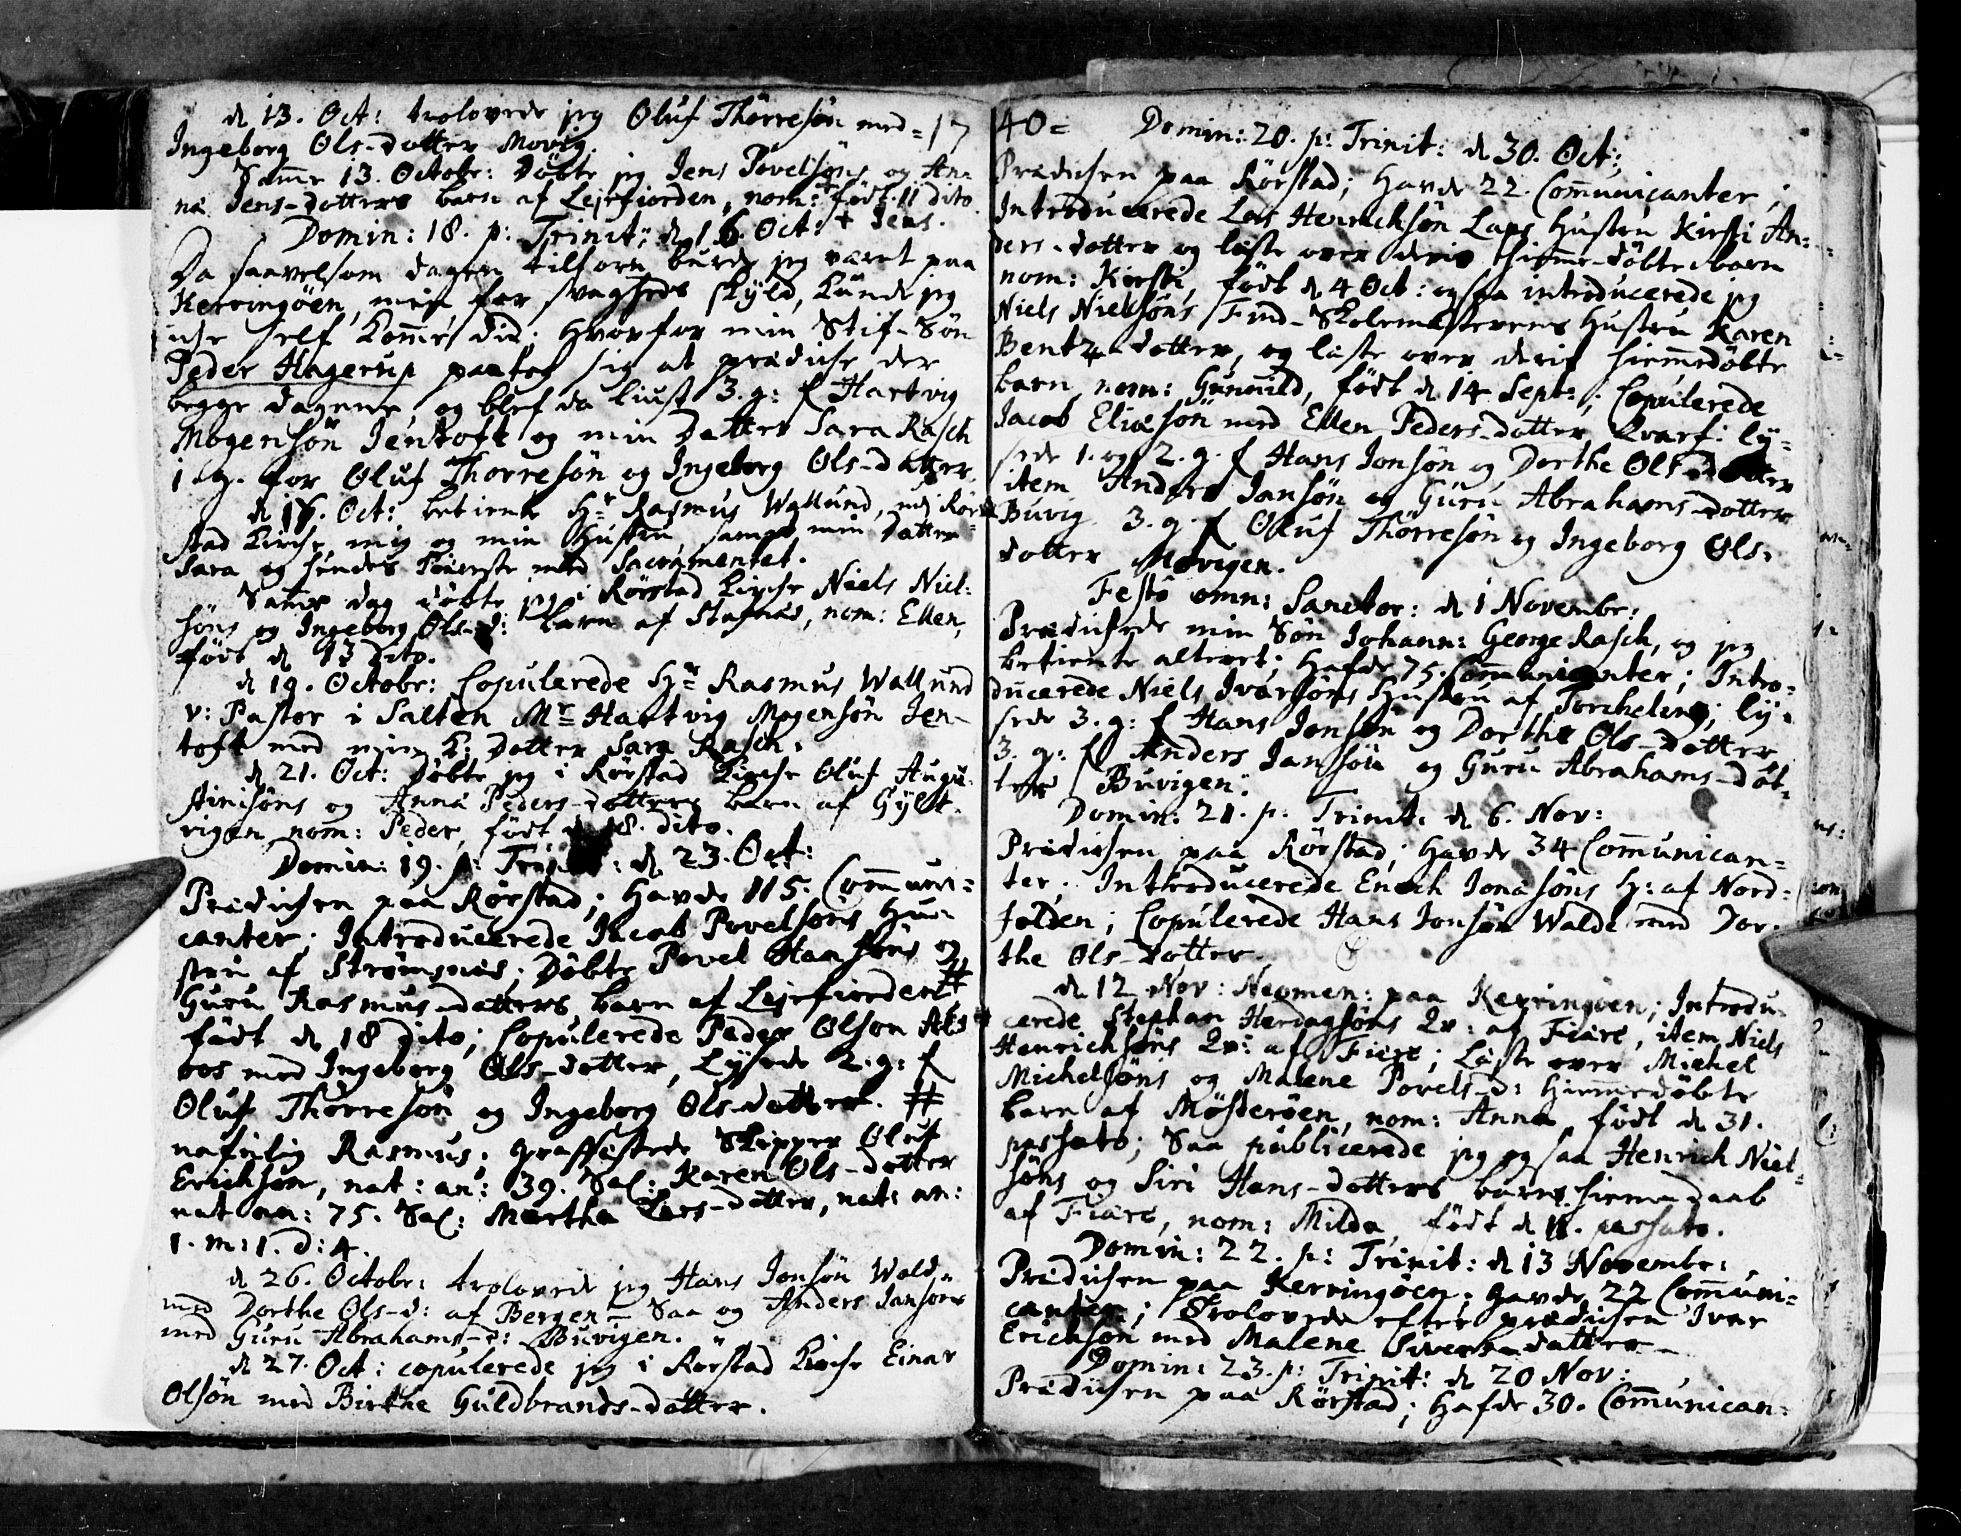 d 13. Oct: trolovede jeg Oluf Thörresön med= 17
Ingeborg Ols-dotter Movig.
Samme 13. Octobr: döbte jeg Jens Povelsöns og An-
na Jens-dotters barn af Lejrfiorden, nom: födt 11 dito.
Domin: 18. p: Trinit: d 16. Oct: + Jens.
Da saavelsom dagen tilforn burde jeg været paa
Kerringöen, men for svagheds skyld, kunde jeg
icke self komme did; hvorfor min Stif-Sön
Peder Hagerup paatog sig at prædicke der
begge dagene, og blef da liust 3. g: f Hartvig
Mogensön Jentoft og min Datter Sara Rasch
1. g. for Oluf Thorresön og Ingeborg Ols-datter.
d 18. Oct: betiente Hr Rasmus Wallund, udj Rör-
stad Kirche mig og min Hustru, sampt min Datter
Sara og hendes Kiereste med Sacramentet.
Samme dag döbte jeg i Rörstad Kirche Niels Niel-
söns og Ingeborg Ols-d: barn af Stafnæs, nom: Ellen,
födt d 13 dito.
d 19. Octobr: Copulerede Hr Rasmus Wallund
v: Pastor i Salten Mr Hartvig Mogensön Jen-
toft med min K: Datter Sara Rasch.
d 21. Oct: döbte jeg i Rörstad Kirche Oluf Augu-
stinisöns og Anna Peders-dotters barn af Gylt-
vigen nom: Peder, födt d 18. dito.
Domin: 19. p: Trinit: d 23. Oct:
Prædicken paa Rörstad; Havde 115. Communi-
canter; Introducerede Jacob Povelsöns Hu-
stru af Strömsnæs; Döbte Povel Hansöns og
Guru Rasmus-datters barn af Lejrfiorden #
födt d 18 dito; Copulerede Peder Olson Aks
oos med Ingeborg Ols-dotter, Lysede 2. g: f
Oluf Thorresön og Ingeborg Ols-dotter. #
nafnlig Rasmus. graffestede Skipper Oluf
Erichsen, nat: an: 39. Sal: Karen Ols-dotter
nat an: 75. Sal: Martha Lars-dotter, nat: an:
1. m: 1. d: 4.
d 26. Octobr: trolovede jeg Hans Jonsön Wold-
med Dorthe Ols-d: af Bergen - Saa og Anders Jansön
med Guru Abrahams-d: Buvigen.
d 27. Oct: copulerede jeg i Rörstad Kirche Einar
Olsön med Birthe Guldbrands-dotter.
40= Domin: 20. p: Trinit: d 30. Oct:
Prædicken paa Rörstad; Havde 22. Communicanter;
Introducerede Lars Henrichsön Laps Hustru Kirsti An-
ders-dotter og läste over deris hiemme-döbte barn
nom: Kirsti, födt d 4 Oct: ogsaa introducerede jeg
Niels Nielsöns Find-Skolemesterens Hustru Karen
Bentz-dotter, og läste over deris hiemmedöbte
barn, nom: Gunnild, födt d 14 Sept:; Copulerede
Jacob Eliæsön med Ellen Peders-dotter Kvarf: ly-
sede 1. og 2. g. f Hans Jonsön og Dorthe Ols-Dotter
item Anders Jansön og Guru Abrahams-dotter
Buvig 3. g. f Oluf Thörresön og Ingeborg Ols-
dotter Movigen.
Festo omn: Sanctor: d 1 Novembr:
Prædickede min Sön Johann: George Rasch, og jeg
betiente alteret; Hafde 75. Communicanter; Intro-
ducerede Niels Ivarsöns Hustru af Torcheleng; ly-
sede 3. g: f Hans Jonsön og Dorthe Ols-Dotter
3. g: f Anders Jansön og Guru Abrahams-Dot-
ter Buvigen.
Domin: 21. p: Trinit: d 6. Nov:
Prædicken paa Rörstad; Havde 34 Communican-
ter; Introducerede Enoch Jonasöns H: af Nord-
folden; Copulerede Hans Jonsön Walde med Dor-
the Ols-Dotter.
d 12 Nov: Neomen: paa Kerringöen; Introdu-
cerede Stephan Herdagsöns Qv: af Fiære, item Niels
Henrichsöns Qv: af Fiære; Läste over Michel
Michelsöns og Malene Povels-d: hiemmedöbte
barn af Mösteröen, nom: Anna, födt d 31.
passato; Saa publicerede jeg og saa Henrich Niel-
söns og Siri Hans-dotters barns hiemmedaab
af Fiære, nom: Milda, födt d 18. passato.
Domin: 22. p: Trinit: d 13 Novembr:
Prædicken paa Kerringöen; Havde 22 Communi-
canter; Trolovede efter prædicken Ivar
Erichsön med Malene Siverts-datter -
Domin: 23. p: Trinit: d 20 Nov:
Prædicken paa Rörstad; Hafde 30. Communican-